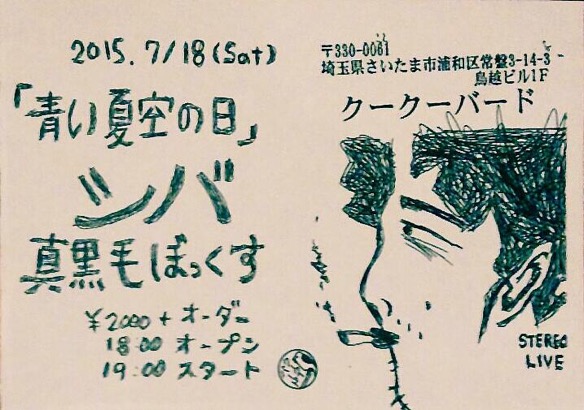 2015.7/18(Sat)
「青い夏空の日」
シバ
真黒毛ぼっくす
¥2000+オーダー
18:00 オープン
19:00 スタート
〒330-0061
埼玉県さいたま市浦和区常盤3-14-3
鳥越ビル1F
クークーバード
STEREO
LIVE